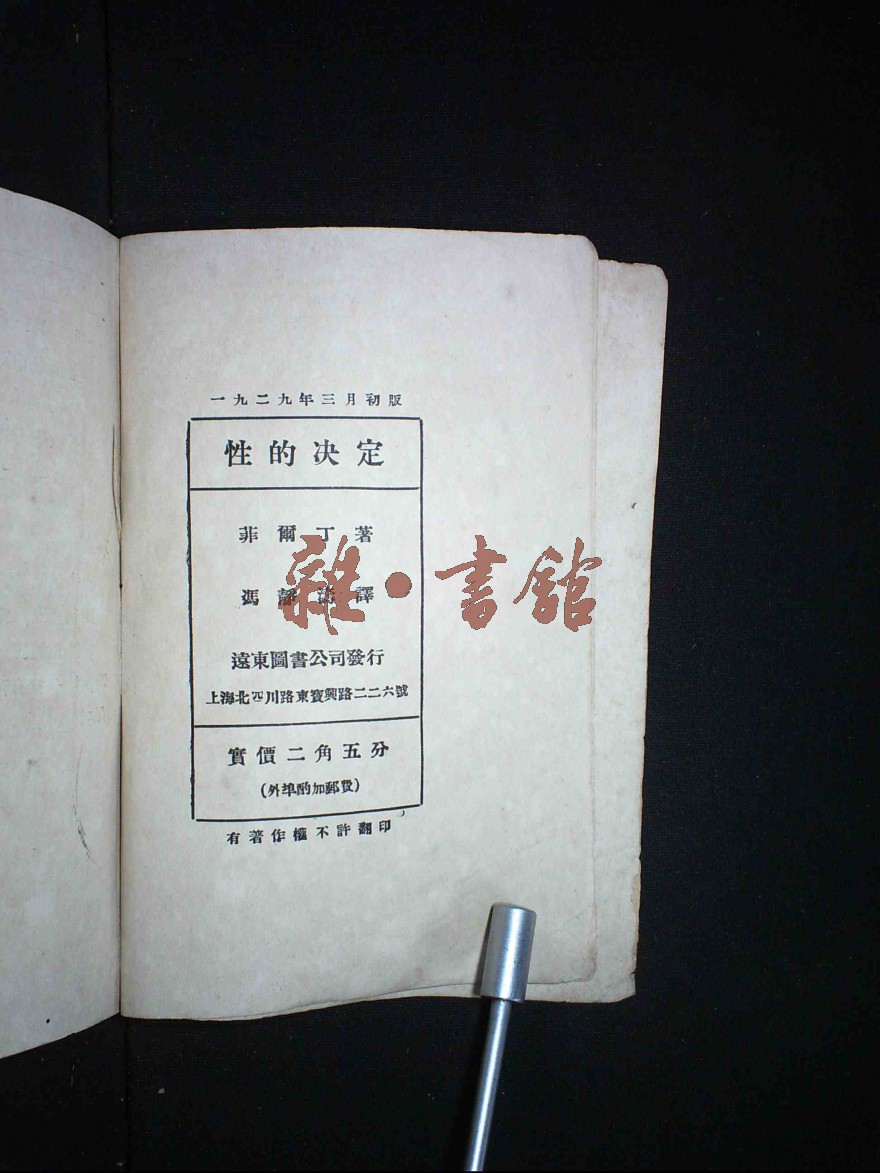 一九二九年三月初版
性的決定
菲爾丁著
馮靜 譯
遠東圖書公司發行
上海北四川路東寶興路二二六號
實價二角五分
(外埠酌加郵費)
有著作權不許翻印
雜·書館